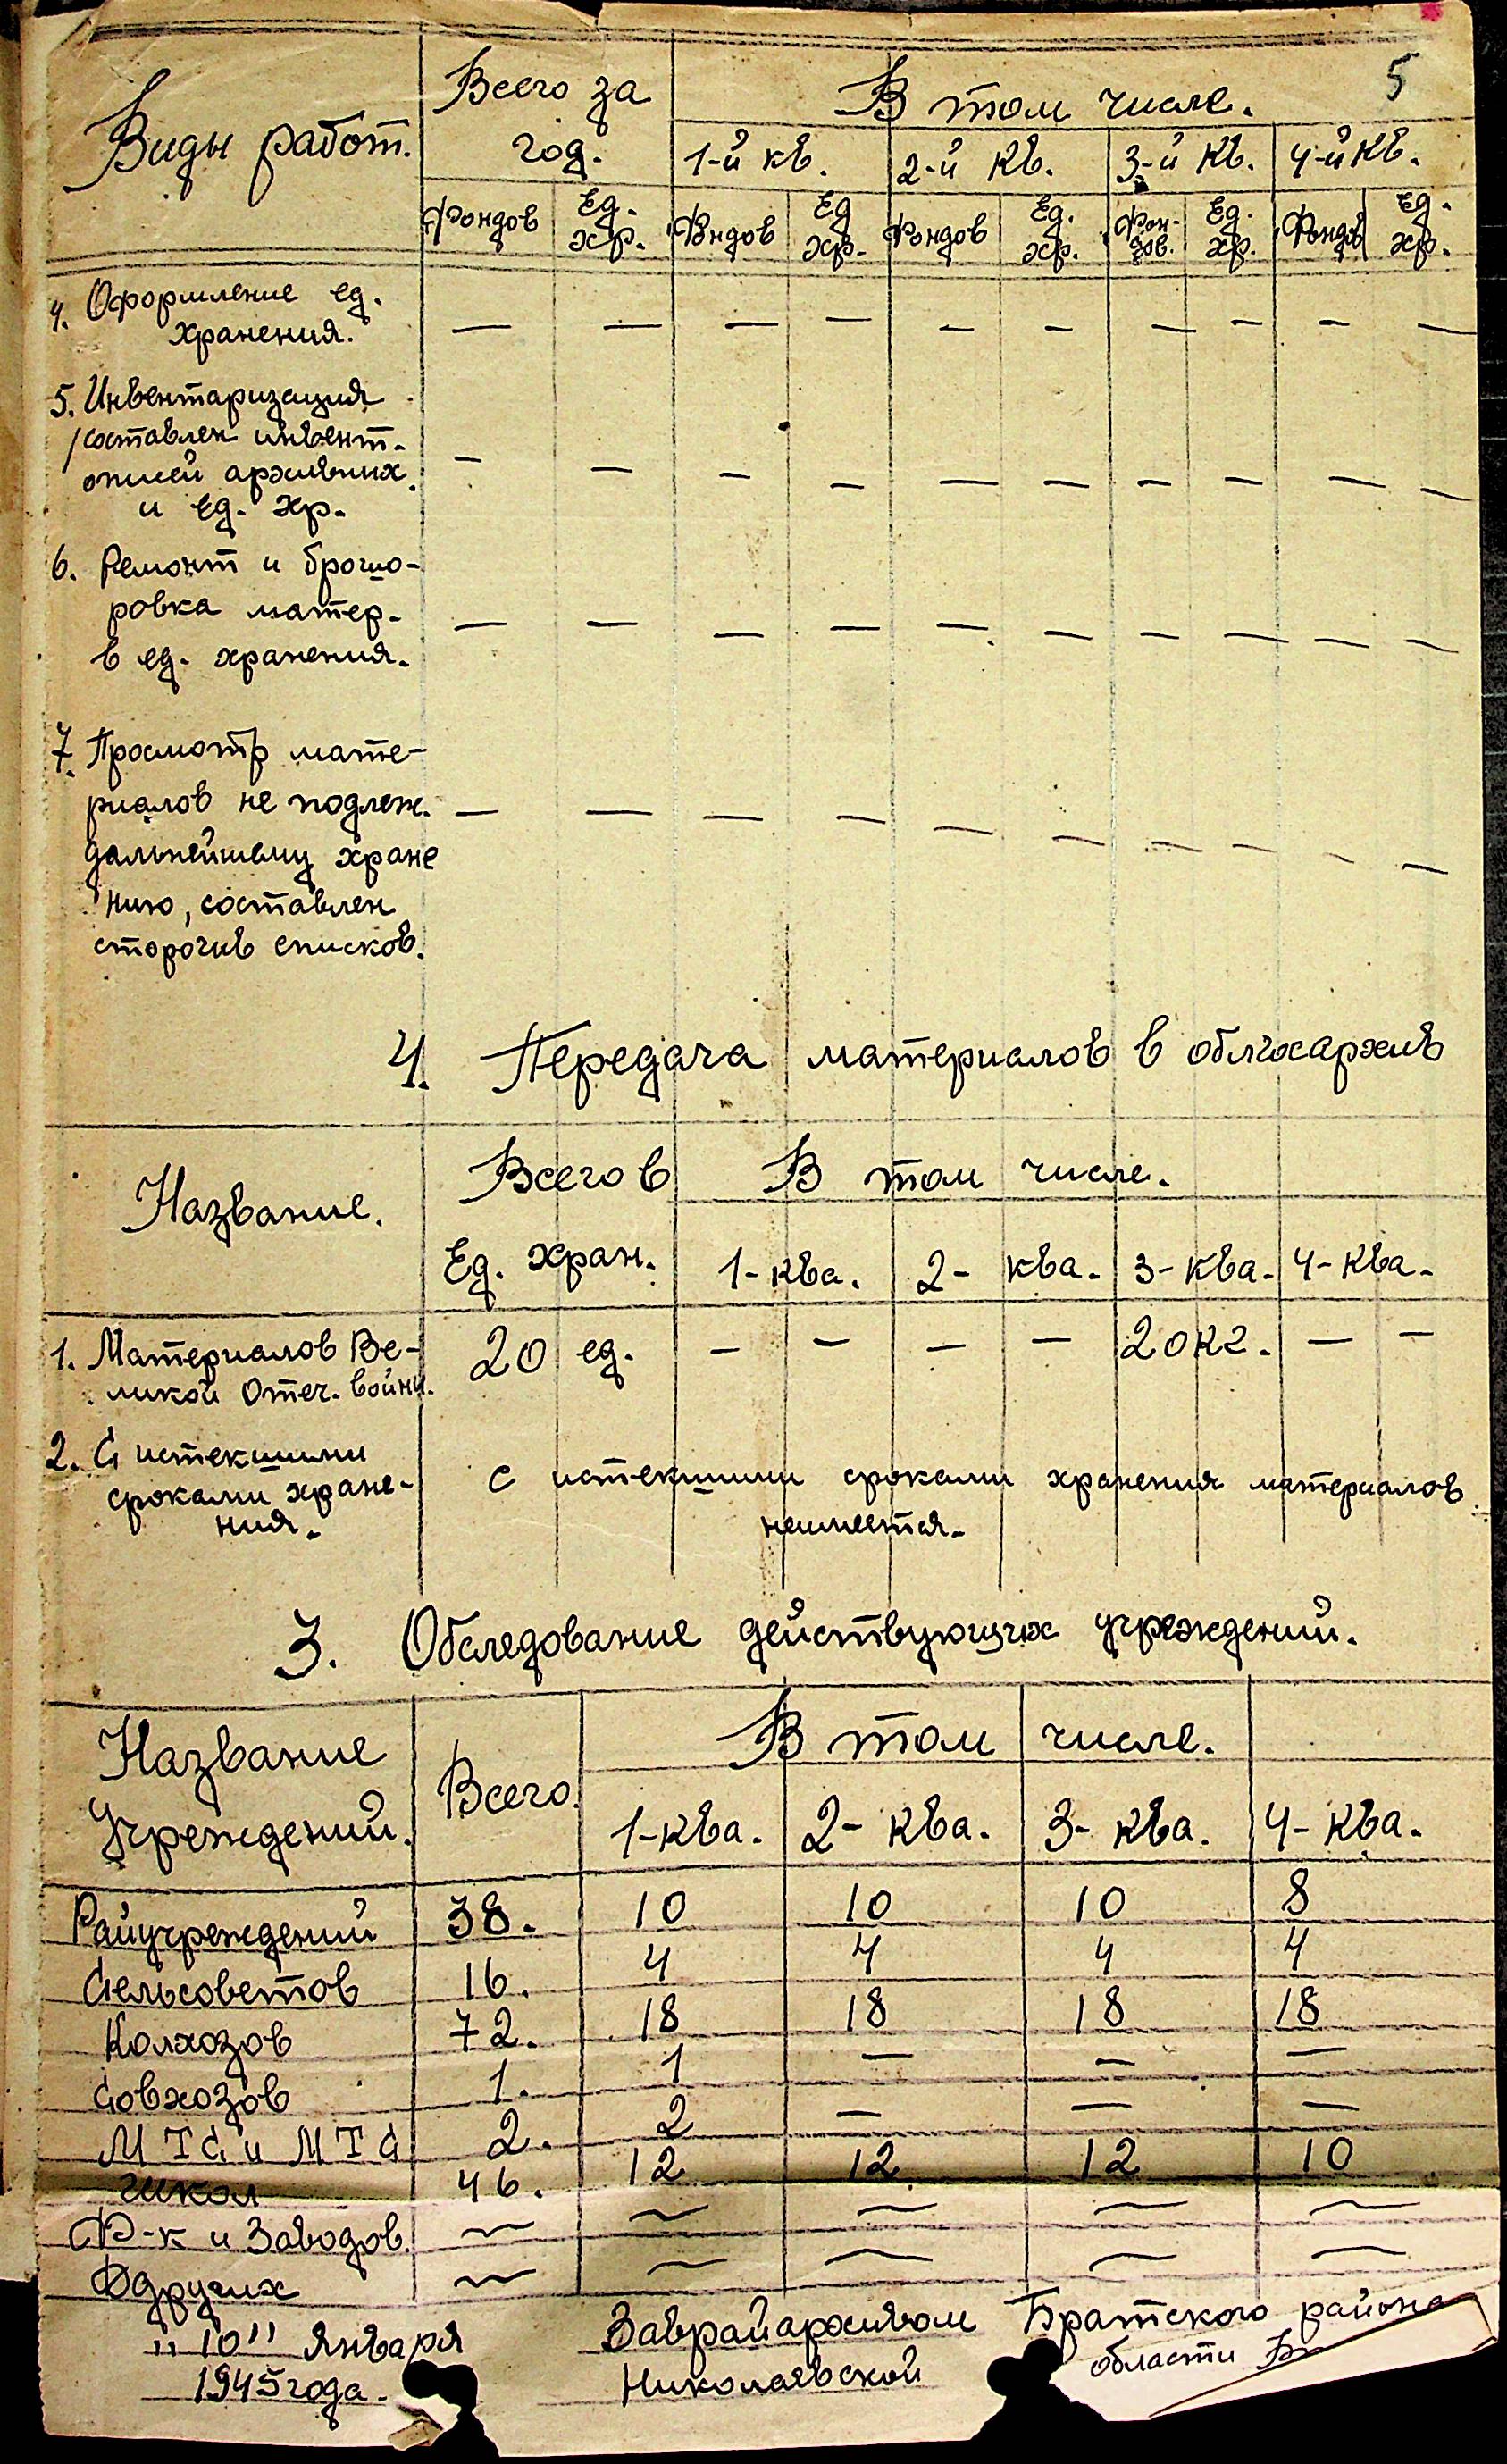 5
Виды работ. Всего за год. В том числе.
1-й кв. 2-й кв. 3-й кв. 4-й кв.
Фондов Ед. хр. Фндов Ед хр. Фондов Ед. хр. Фон-дов. Ед. хр. Фондов Ед. хр.
4. Оформление ед.
хранения. — — — — — — — — — —
5. Инвентаризация
/составлен инвент-
описей архивних
и ед. хр. — — — — — — — — — —
6. Ремонт и брошю-
ровка матер.
в ед. хранения. — — — — — — — — — —
7. Просмотр мате-
риалов не подлеж. — — — — — — — — — —
дальнейшему хране
нию, составлен
списков.
4. Передача материалов в облгосархив
Название. Всего в В том числе.
Ед. хран. 1-ква. 2-ква. 3-ква. 4-ква.
1. Материалов Ве- 20 ед. — — — — 20кг. — —
ликой Отеч. войны.
2. С истекшими
сроками хране-
ния.
с истекшими сроками хранения материалов
неимеется.
3. Обследование действующих учреждений.
Название Учреждений. Всего. В том числе.
1-ква. 2-ква. 3-ква. 4-ква.
Райучреждений 38. 10 10 10 8
Сельсоветов 16. 4 4 4 4
Колхозов 72. 18 18 18 18
Совхозов 1. 1 — — —
МТС и МТС 2. 2 — — —
школ 46. 12 12 12 10
Ф-к и Заводов. — — — — —
других — — — — —
„10" Января
1945 года.
Заврайархивом Братского района
Николаевской области